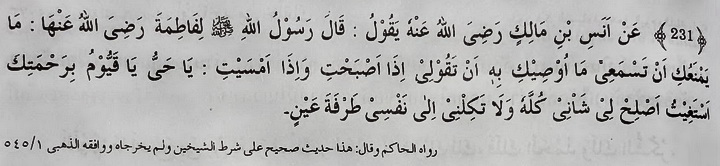 ﴿231﴾ عَنْ اَنَسِ بْنِ مَالِكٍ رَضِیَ اللهُ عَنْهُ یَقُوْلُ : قَالَ رَسُوْلُ اللهِ ﷺ لِفَاطِمَةَ رَضِیَ اللهُ عَنْهَا : مَا
یَمْنَعُكِ اَنْ تَسْمَعِیْ مَا اُوْصِیْكِ بِهِ اَنْ تَقُوْلِیْ اِذَا اَصْبَحْتِ وَاِذَا اَمْسَیْتِ : یَا حَیُّ یَا قَیُّوْمُ بِرَحْمَتِكَ
اَسْتَغِیْثُ اَصْلِحْ لِیْ شَاْنِیْ كُلَّهُ وَلَا تَكِلْنِیْ اِلٰی نَفْسِیْ طَرْفَةَ عَیْنٍ۔
رواه الحاكم وقال: هذا حديث صحيح على شرط الشيخين ولم يخرجاه ووافقه الذهبى ٥٤٥/١